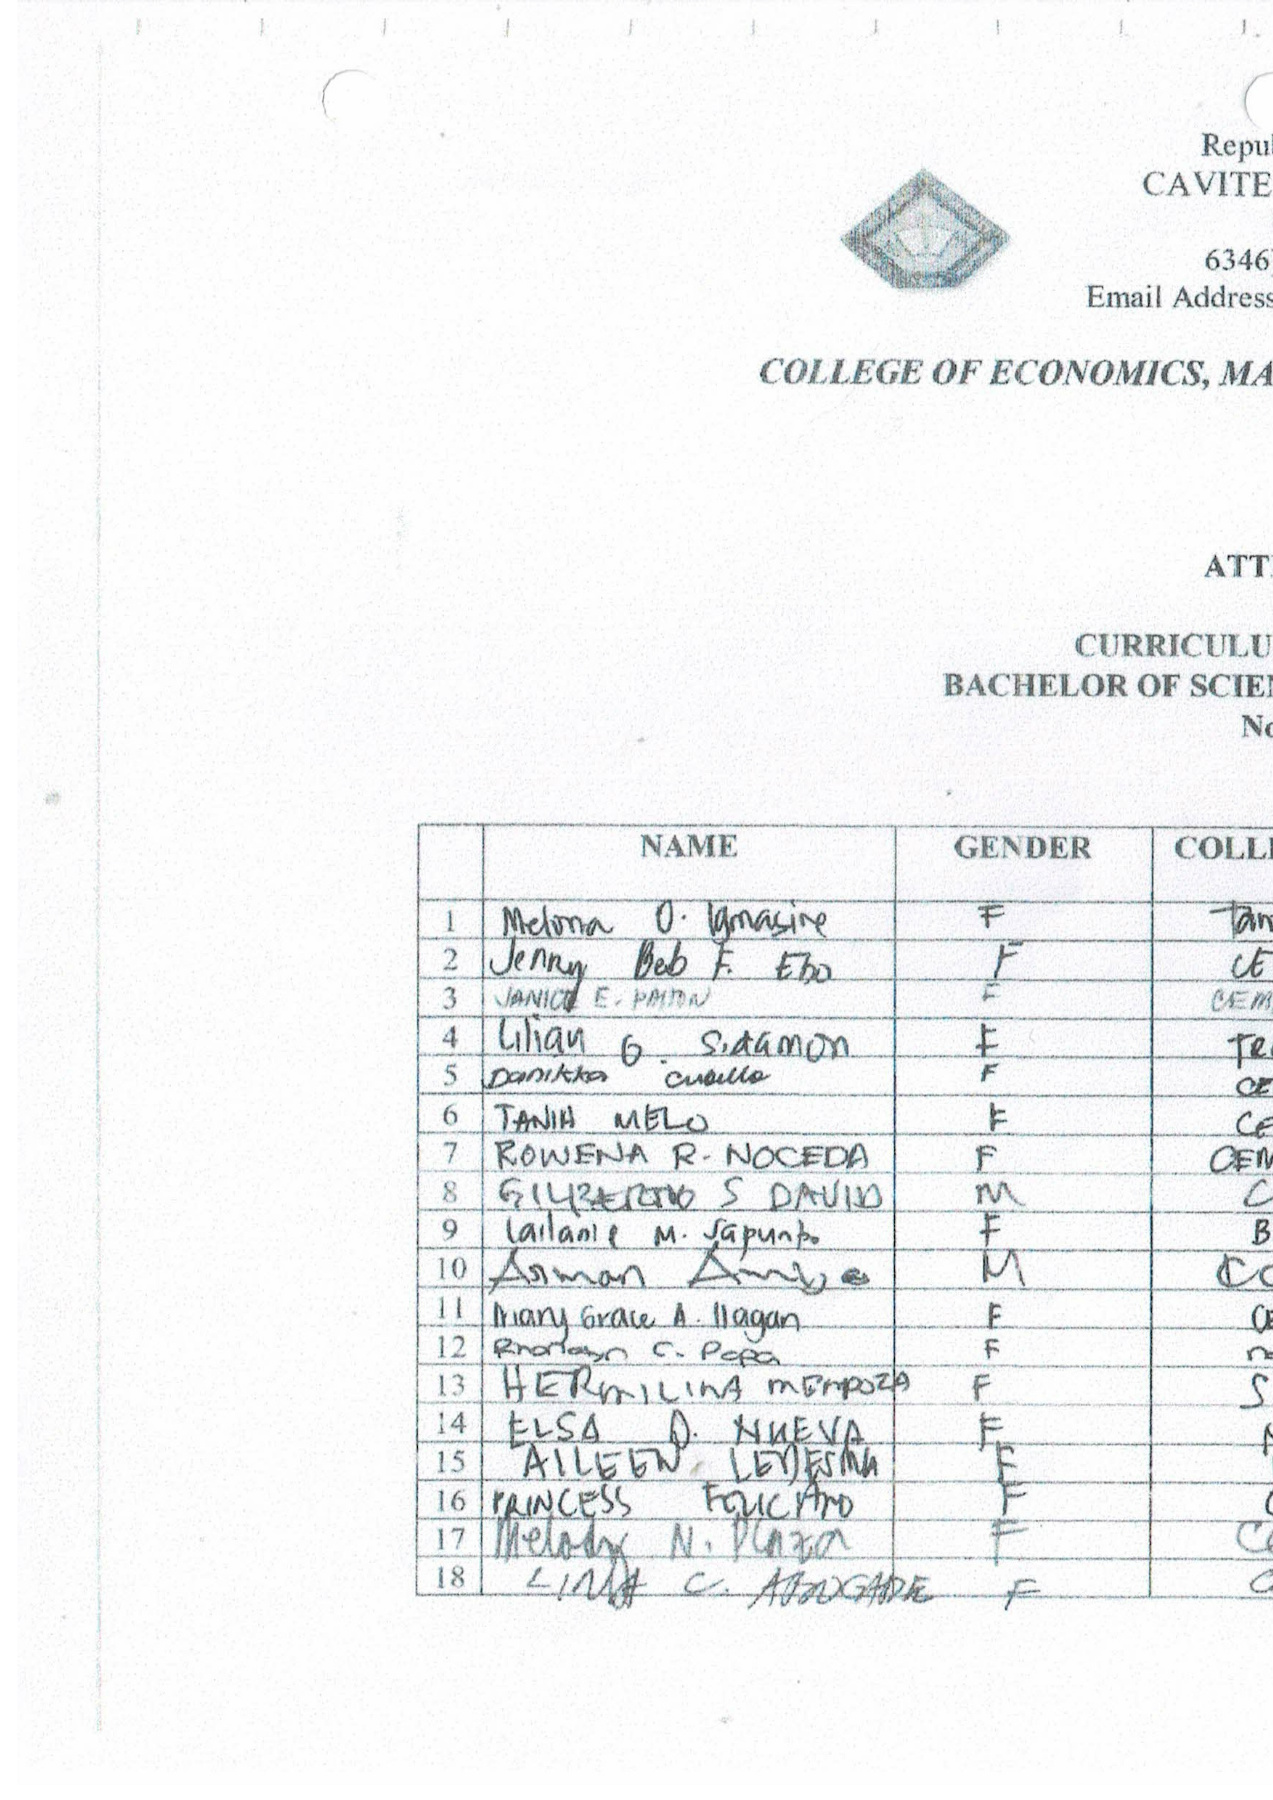 Repu
CAVITE
6346
Email Address
COLLEGE OF ECONOMICS, MA
ATT
CURRICULU
BACHELOR OF SCIEN
No
NAME GENDER COLLE
1 Melona O. Ignasine F Tam
2 Jenny Beb F. Ebo F CE
3 JANICE E. F CEM
4 Lilian G. Sidamon F
5 Danikka Cubillo F CE
6 TANIH MELO F CE
7 ROWENA R. NOCEDA F CEM
8 GILBERTO S DAVID M C
9 Lailanie M. Sapunto F B
10 Arman M CO
11 Mary Grace A. Ilagan F CE
12 C. Papa F
13 HERMILINA MENDOZA F S
14 ELSA D. NUEVA F
15 AILEEN LEDESMA F
16 PRINCESS FELICIANO F C
17 Melody N. Plaza F Ce
18 LINDA C. ABOGADIE F C